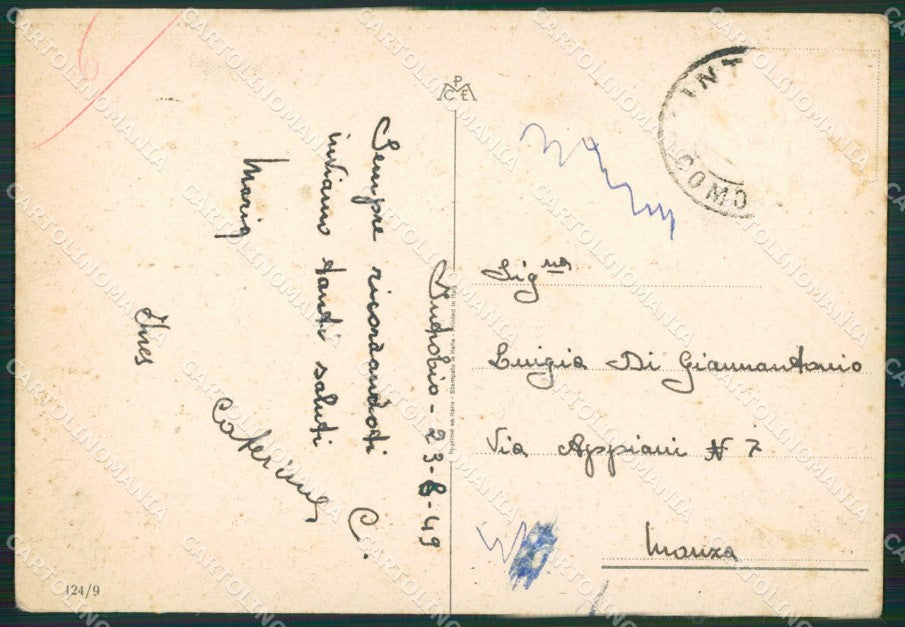 Introbio - 23-8-49
Sempre ricordandoti
inviamo tanti saluti
Maria
Caterina C.
Ines
P
CE
124/9
Imprimé en Italie - Stampato in Italia - Printed in Italy
INT
COMO
Sig.na
Luigia Di Giannantonio
Via Appiani N 7
Monza
CARTOLINOMANIA